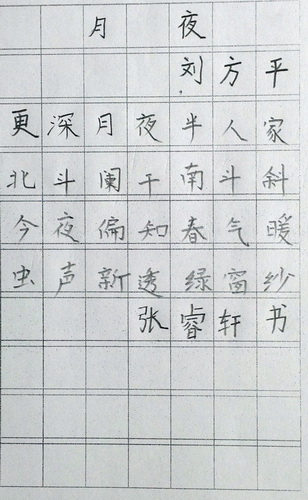 月夜
刘方平
更深月夜半人家
北斗阑干南斗斜
今夜偏知春气暖
虫声新透绿窗纱
张睿轩书